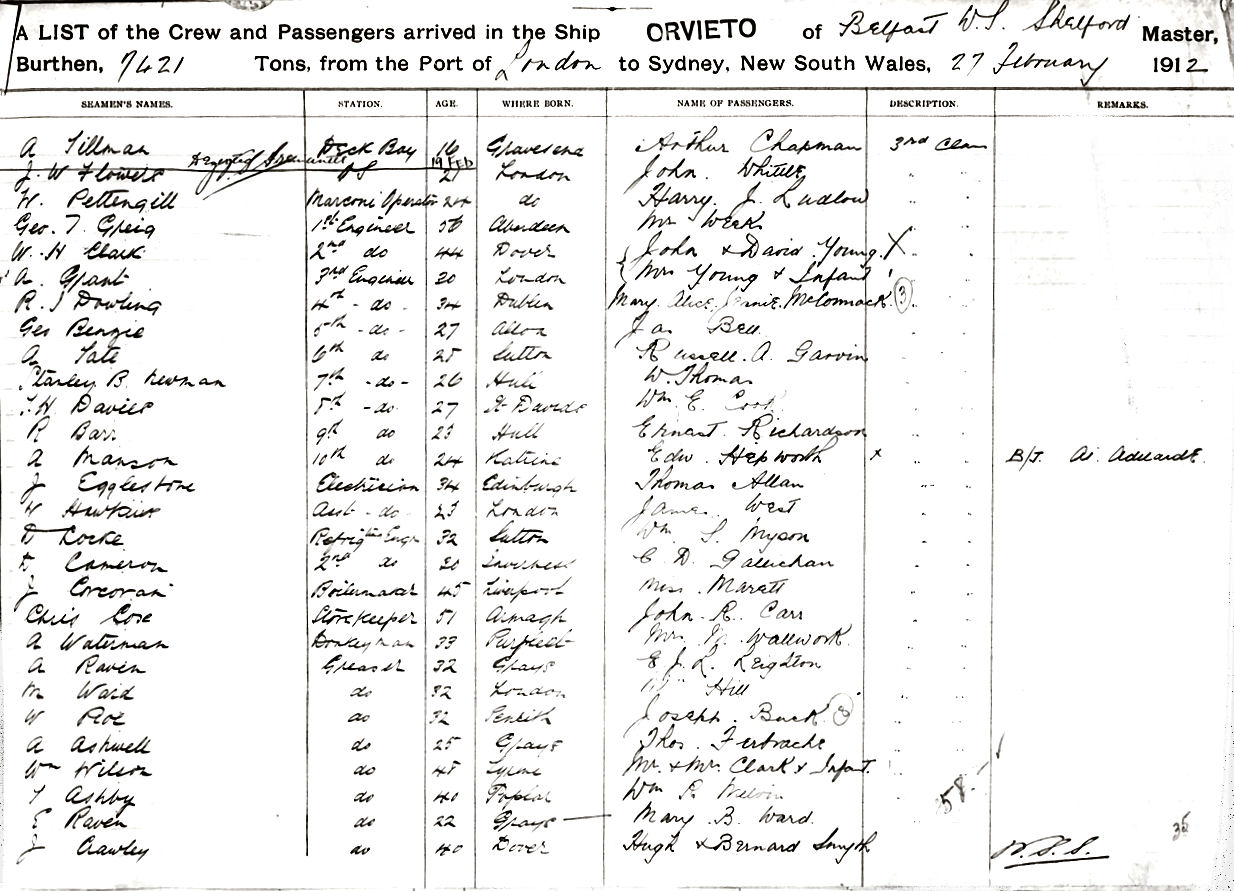 A LIST of the Crew and Passengers arrived in the Ship ORVIETO of Belfast W.S. Shelford Master,
Burthen, 7421 Tons, from the Port of London to Sydney, New South Wales, 27 February 1912
SEAMEN'S NAMES. STATION. AGE. WHERE BORN. NAME OF PASSENGERS. DESCRIPTION. REMARKS.
A Tillman Deck Boy 16 Gravesend Arthur Chapman 3rd Class
J. W Flowers 19 Feb 21 London John Whittle
W. Pettengill Marconi Operator 24 do Harry J. Ludlow
Geo. T. Greig 1st Engineer 56 Aberdeen Mr
W. H Clark 2nd do 44 Dover John & David Young X
A. Grant 3rd Engineer 30 London Mrs Young & Infant
R. J Dowling 4th - do - 34 Dublin Mary. Alice. Jennie. McCormack. 3
Geo Benzie 5th - do - 27 Alloa Jas Bell
A Tate 6th do 28 Sutton Russell. A. Garvin
Stanley B. Newman 7th - do - 26 Hull W. Thomas
T. H. Davies 8th - do - 27 St Davids Wm. E. Cook
R Barr 9th do 23 Hull Ernest Richardson
A Manson 10th do 24 Katrine Edw. Hepworth x B/T. At Adelaide.
J Egglestone Electrician 34 Edinburgh Thomas Allan
W Hawkins Asst - do - 23 London James West
D Locke Refrigtng Engr 32 Sutton Wm S. Myson
D. Cameron 2nd do 30 Inverness C D. Gallichan
J Corcoran Boilermaker 45 Liverpool Miss Marett
Chris Cose Storekeeper 51 Armagh John R. Carr
A Waterman Donkeyman 33 Purfleet Mrs M. Wallwork.
A Raven Greaser 32 Grays E J. L. Leighton
M Ward do 32 London Hill
W Roe do 32 Penrith Joseph. Buck. 3
A Ashwell do 25 Grays Thos. Ferbrache
Wm Wilson do 48 Lyme Mr. & Mrs. Clark & Infant.
T Ashby do 40 Poplar Wm R 58
E Raven do 22 Grays Mary B. Ward.
J Crawley do 40 Dover Hugh & Bernard Smyth W.S.S. 35